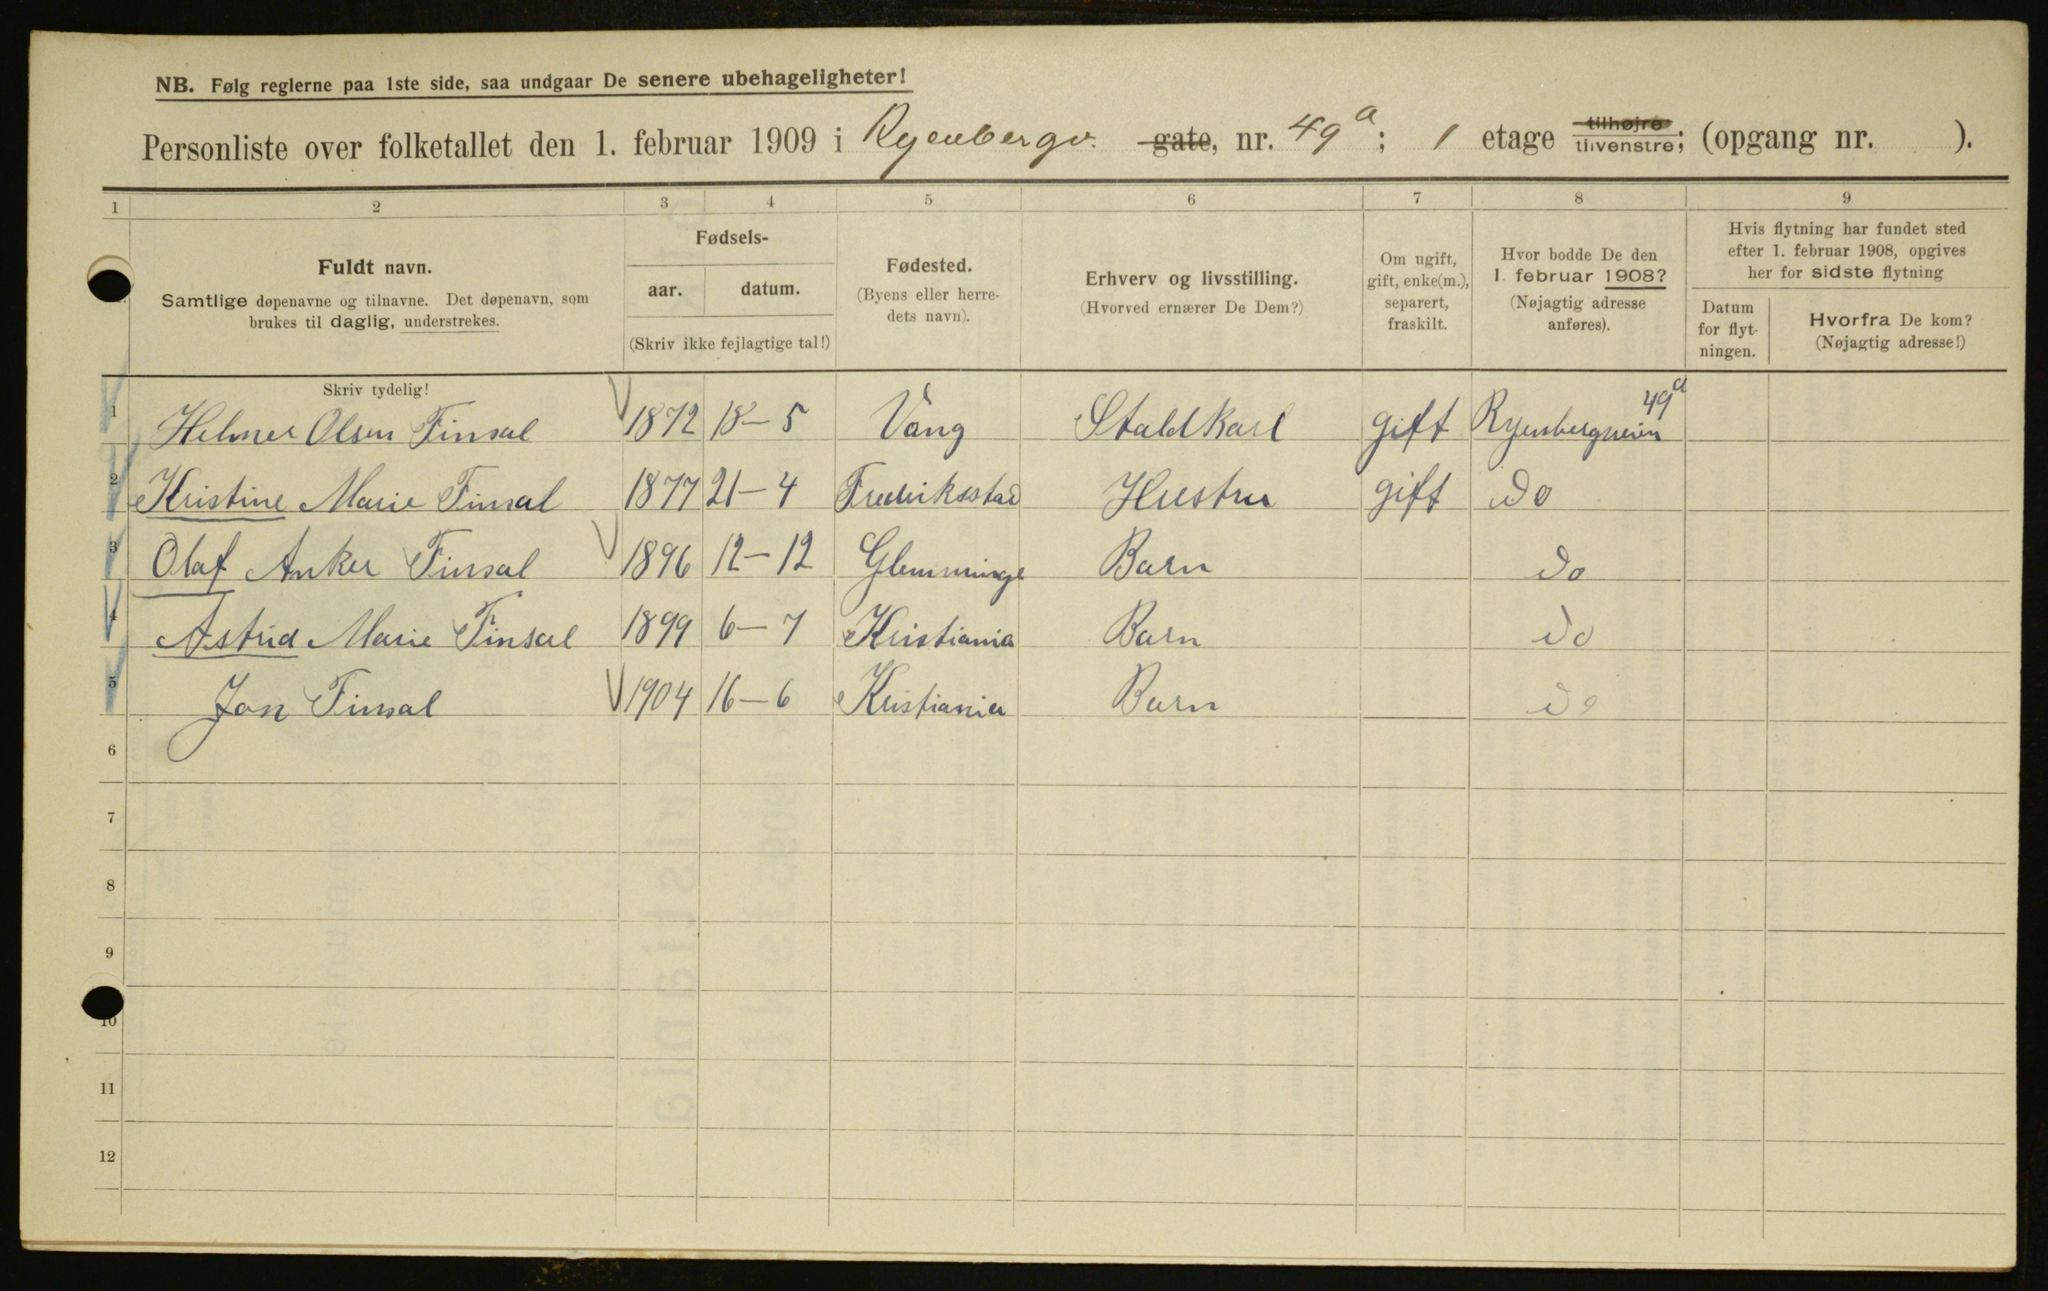 NB. Følg reglerne paa 1ste side, saa undgaar De senere ubehageligheter!
Personliste over folketallet den 1. februar 1909 i Ryenbergv. gate, nr. 49a; 1 etage tilhøjre tilvenstre; (opgang nr. ).
1 2 3 4 5 6 7 8 9
Fuldt navn.
Samtlige døpenavne og tilnavne. Det døpenavn, som
brukes til daglig, understrekes.
Fødsels-
aar. datum.
(Skriv ikke fejlagtige tal!)
Fødested.
(Byens eller herre-
dets navn).
Erhverv og livsstilling.
(Hvorved ernærer De Dem?)
Om ugift,
gift, enke(m.),
separert,
fraskilt.
Hvor bodde De den
1. februar 1908?
(Nøjagtig adresse
anføres).
Hvis flytning har fundet sted
efter 1. februar 1908, opgives
her for sidste flytning
Datum
for flyt-
ningen.
Hvorfra De kom?
(Nøjagtig adresse!)
Skriv tydelig!
1 Helmer Olsen Finsal 1872 18-5 Vang Staldkarl gift Ryenbergveien 49a
2 Kristine Marie Finsal 1877 21-4 Frederiksstad Hustru gift do
3 Olaf Anker Finsal 1896 12-12 Glemminge Barn do
4 Astrid Marie Finsal 1899 6-7 Kristiania Barn do
5 Jon Finsal 1904 16-6 Kristiania Barn do
6
7
8
9
10
11
12